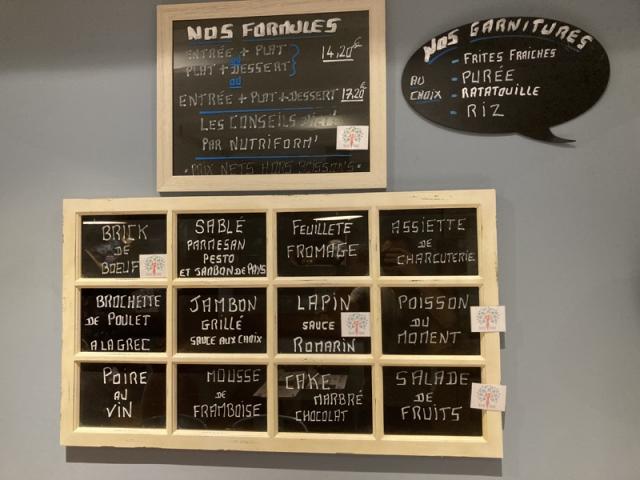 NOS FORMULES
ENTRÉE + PLAT
OU
PLAT + DESSERT
14,20€
OU
ENTRÉE + PLAT + DESSERT 17.20€
LES CONSEILS
PAR NUTRIFORM'
PRIX NETS HORS BOISSONS
NOS GARNITURES
AU CHOIX
- FRITES FRAICHES
- PURÉE
- RATATOUILLE
- RIZ
BRICK
DE
BOEUF
SABLÉ
PARMESAN
PESTO
ET JAMBON DE PAYS
FEUILLETE
FROMAGE
ASSIETTE
DE
CHARCUTERIE
BROCHETTE
DE POULET
A LA GREC
JAMBON
GRILLÉ
SAUCE AUX CHOIX
LAPIN
SAUCE
ROMARIN
POISSON
DU
MOMENT
POIRE
AU
VIN
MOUSSE
DE
FRAMBOISE
CAKE
MARBRÉ
CHOCOLAT
SALADE
DE
FRUITS